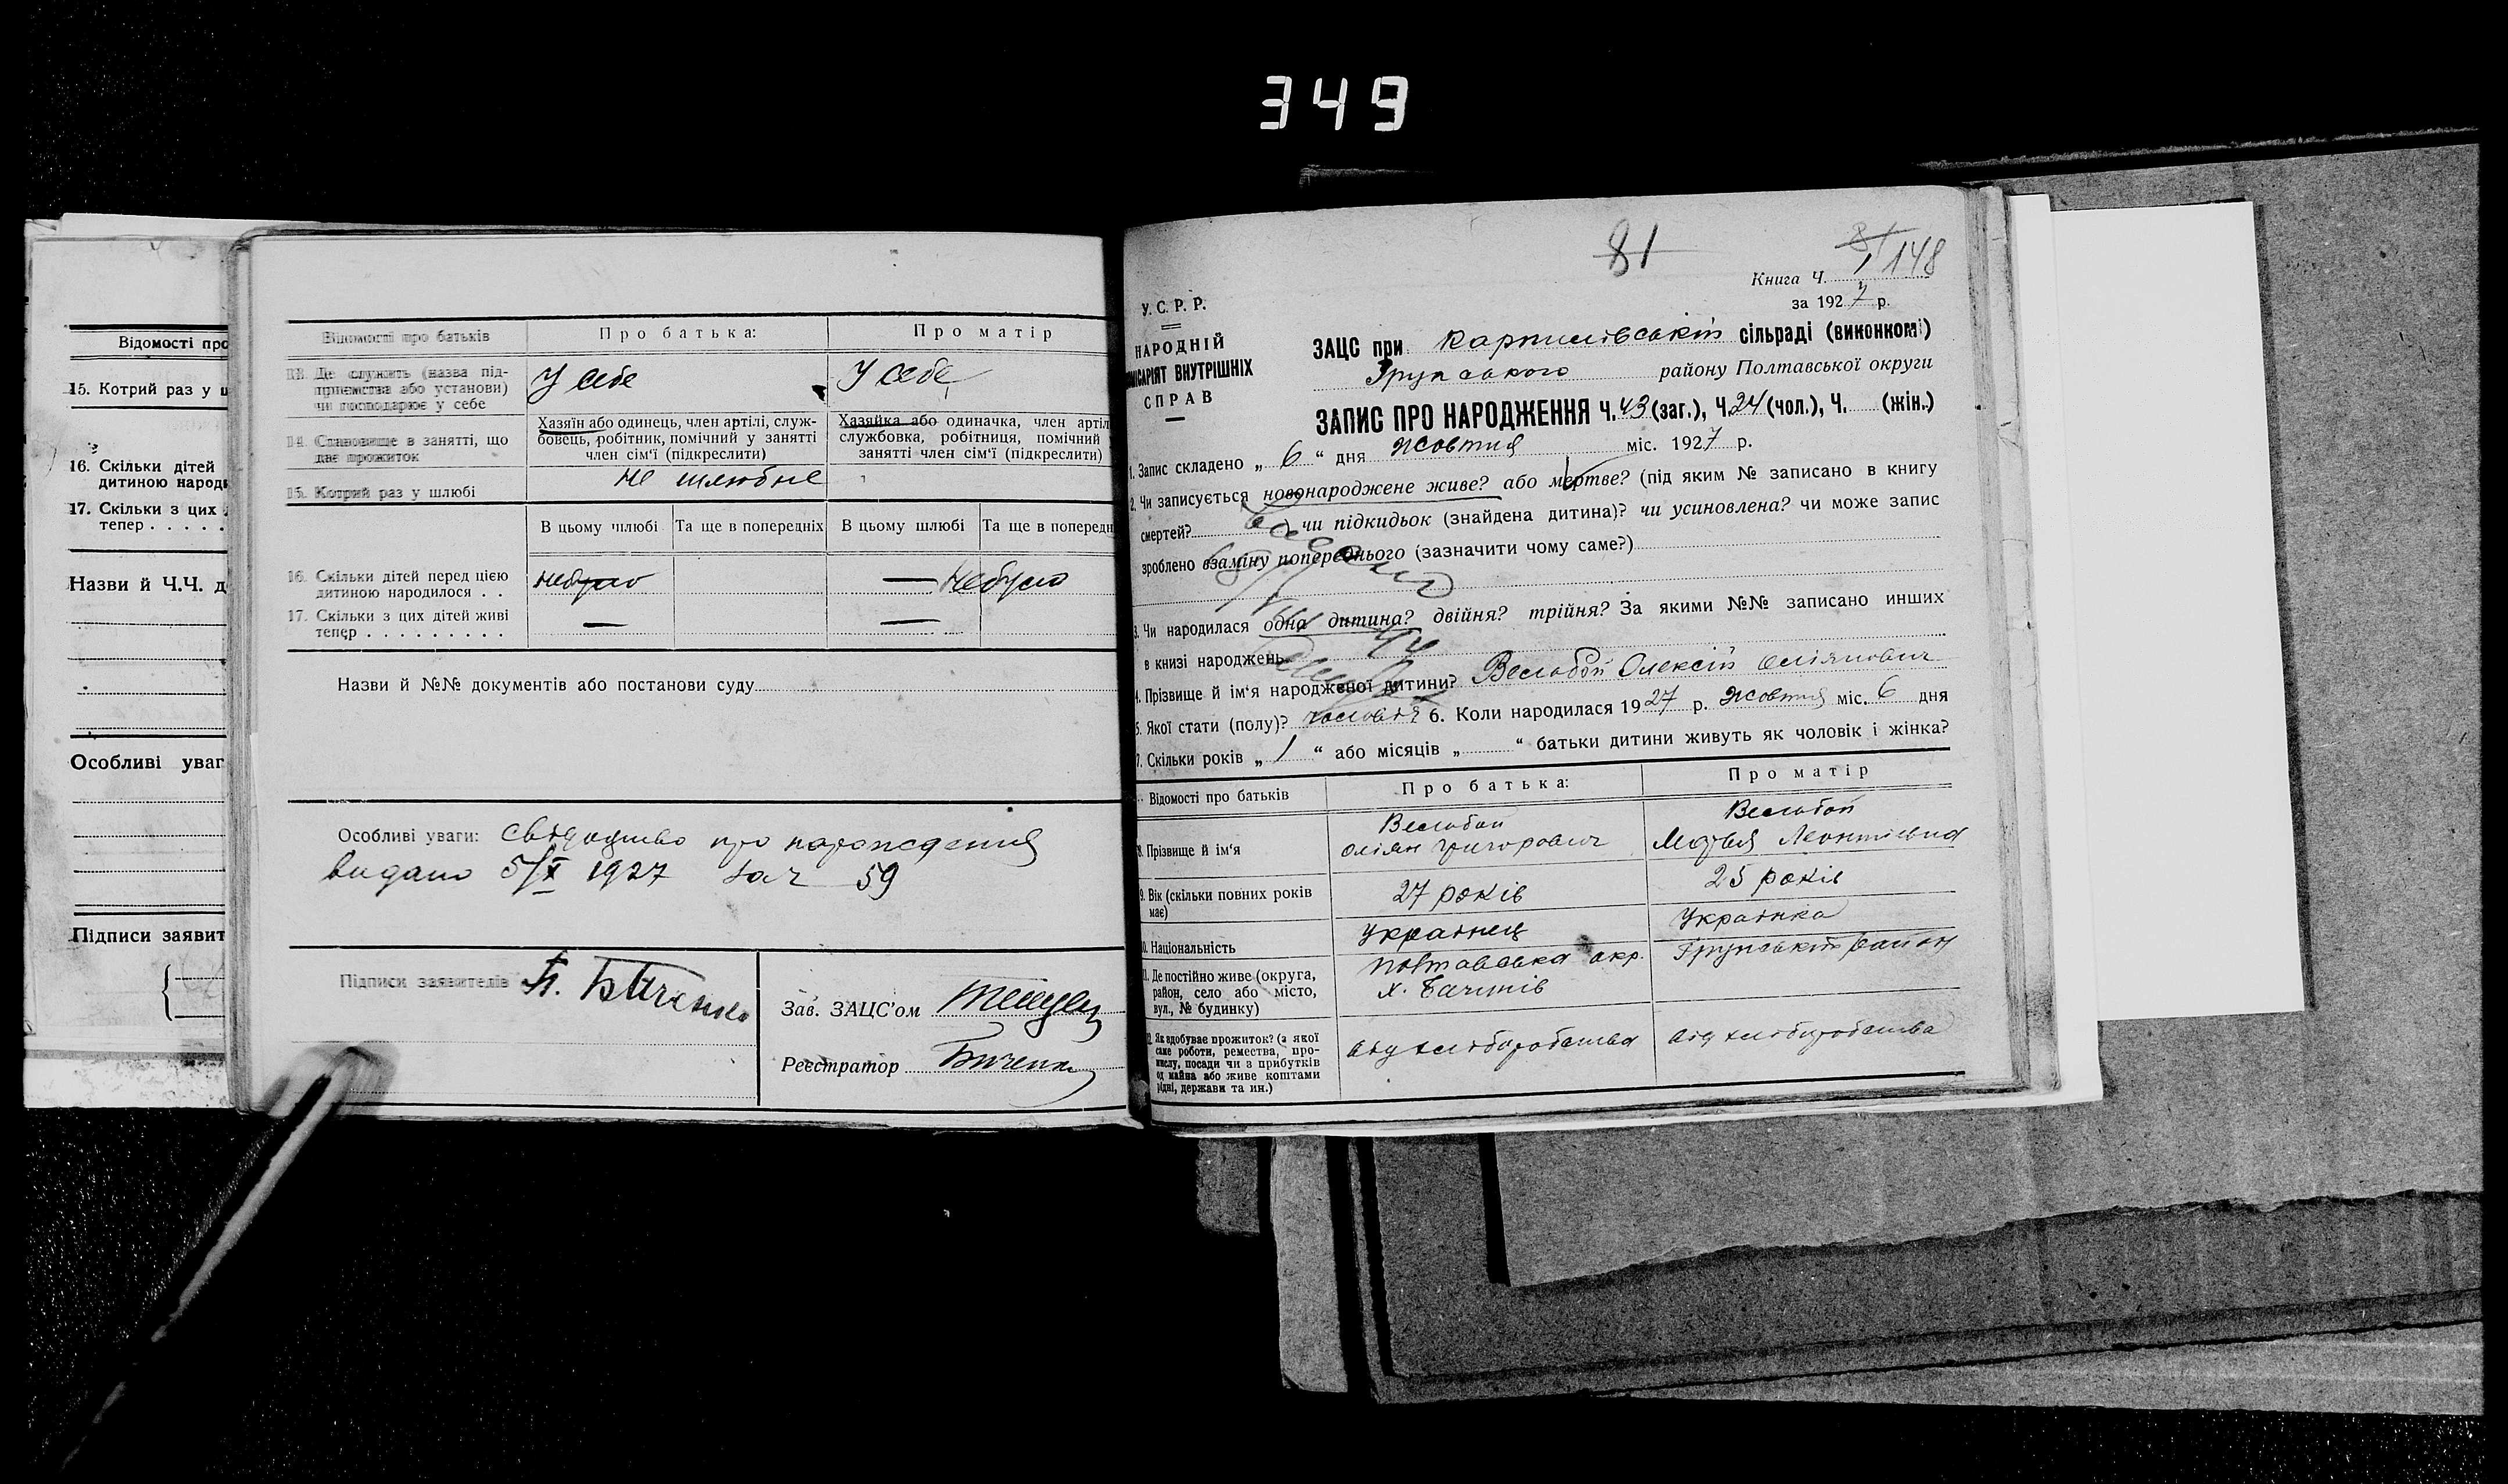 349
Відомості про
15. Котрий раз у ш
16. Скільки дітей
дитиною народи
17. Скільки з цих
тепер . . . . .
Назви й Ч.Ч. д
Особливі уваг
Підписи заявит
Відомості про батьків
Про батька:
Про матір
13. Де служить (назва під-
приємства або установи)
чи господарює у себе
У себе
У себе
14. Становище в занятті, що
дає прожиток
Хазяїн або одинець, член артілі, служ-
бовець, робітник, помічний у занятті
член сім'ї (підкреслити)
Хазяйка або одиначка, член артіл
службовка, робітниця, помічний
занятті член сім'ї (підкреслити)
15. Котрий раз у шлюбі
не шлюбне
В цьому шлюбі
Та ще в попередніх
В цьому шлюбі
Та ще в попередн
16. Скільки дітей перед цією
дитиною народилося . .
небуло
— небуло
17. Скільки з цих дітей живі
тепер . . . . . . . . .
—
—
Назви й №№ документів або постанови суду
Особливі уваги: свідоцтво про народження
видано 5/X 1927 за ч 59
Підписи заявителів П. Біченко
Зав. ЗАЦС'ом
Реєстратор Біченко
81
81 148
Книга Ч. 1
за 1927 р.
У.С.Р.Р.
НАРОДНІЙ
МІСАРІЯТ ВНУТРІШНІХ
СПРАВ
ЗАЦС при Карпилівській сільраді (виконкомі)
Грунського району Полтавської округи
ЗАПИС ПРО НАРОДЖЕННЯ Ч. 43 (заг.), Ч. 24 (чол.), Ч. (жін.)
1. Запис складено „ 6 “ дня жовтня міс. 1927 р.
2. Чи записується новонароджене живе? або мертве? (під яким № записано в книгу
смертей? ) чи підкидьок (знайдена дитина)? чи усиновлена? чи може запис
зроблено взаміну попереднього (зазначити чому саме?)
3. Чи народилася одна дитина? двійня? трійня? За якими №№ записано инших
в книзі народжень
4. Прізвище й ім'я народженої дитини? Велобой Олексій Оліянович
5. Якої стати (полу)? чоловія 6. Коли народилася 1927 р. жовтня міс. 6 дня
7. Скільки років „ 1 “ або місяців „ “ батьки дитини живуть як чоловік і жінка?
Відомості про батьків
Про батька:
Про матір
8. Прізвище й ім'я
Велобой
Оліян Григорович
Велобой
Леонтієвна
9. Вік (скільки повних років
має)
27 років
25 років
10. Національність
Українець
Українка
11. Де постійно живе (округа,
район, село або місто,
вул., № будинку)
Полтавська окр.
Грунський район
12. Як здобуває прожиток? (з якої
саме роботи, ремества, про-
мислу, посади чи з прибутків
од майна або живе коштами
рідні, держави та ин.)
від хліборобства
від хліборобства